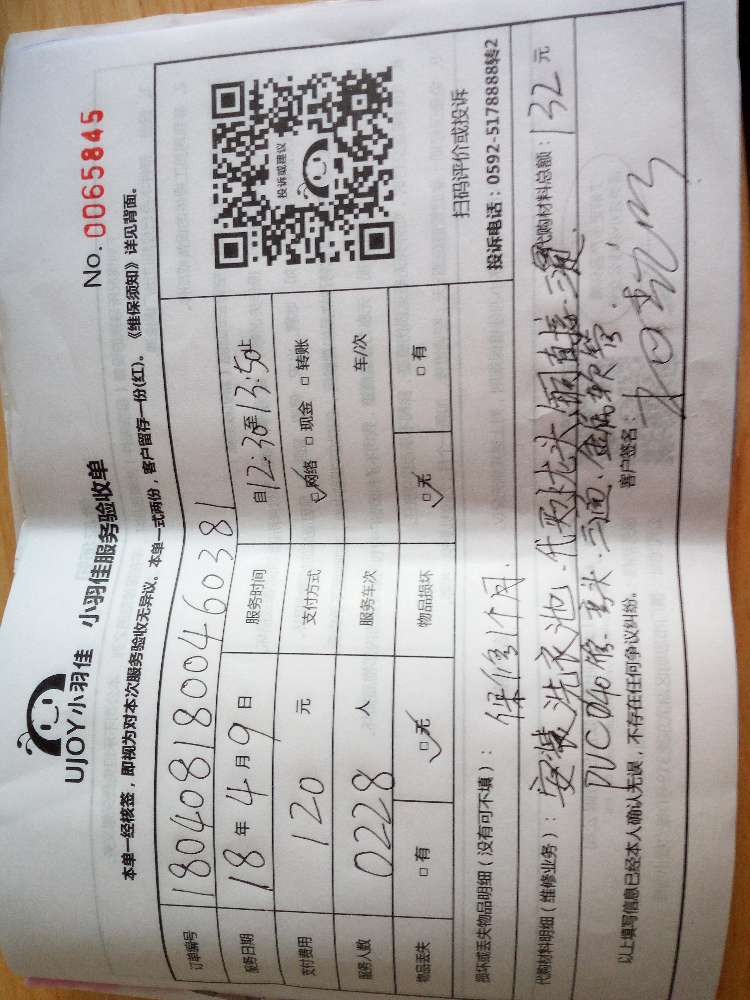 UJOY小羽佳 小羽佳服务验收单
No. 0065845
本单一经核签，即视为对本次服务验收无异议。本单一式两份，客户留存一份(红)。《维保须知》详见背面。
订单编号 1804081800460381
服务日期 18年4月9日 服务时间 自12:30至13:50止
支付费用 120元 支付方式 ☑网络 □现金 □转账
服务人数 0228人 服务车次 车/次
物品丢失 □有 ☑无 物品损坏 ☑无 □有
投诉或建议
扫码评价或投诉
投诉电话：0592-5178888转2
损坏或丢失物品明细（没有可不填）：保修1个月.
代购材料明细（维修业务）：安装洗衣池.代购龙头,铜直接.三通. 代购材料总额：132元
PVC 管.弯头.三通.金属软管.
以上填写信息已经本人确认无误，不存在任何争议纠纷。 客户签名：